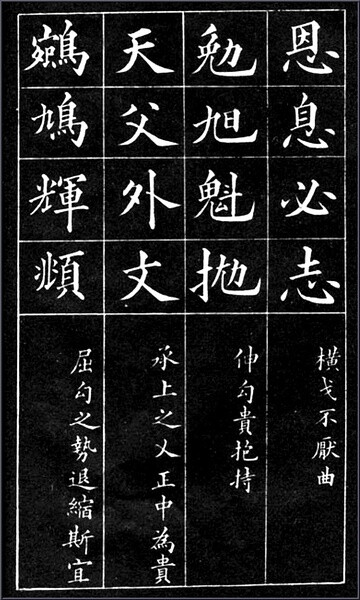 恩息必志
橫戈不厭曲
勉旭魁拋
伸勾貴抱持
天父外文
承上之乂正中為貴
鵷鳩輝頫
屈勾之勢退縮斯宜